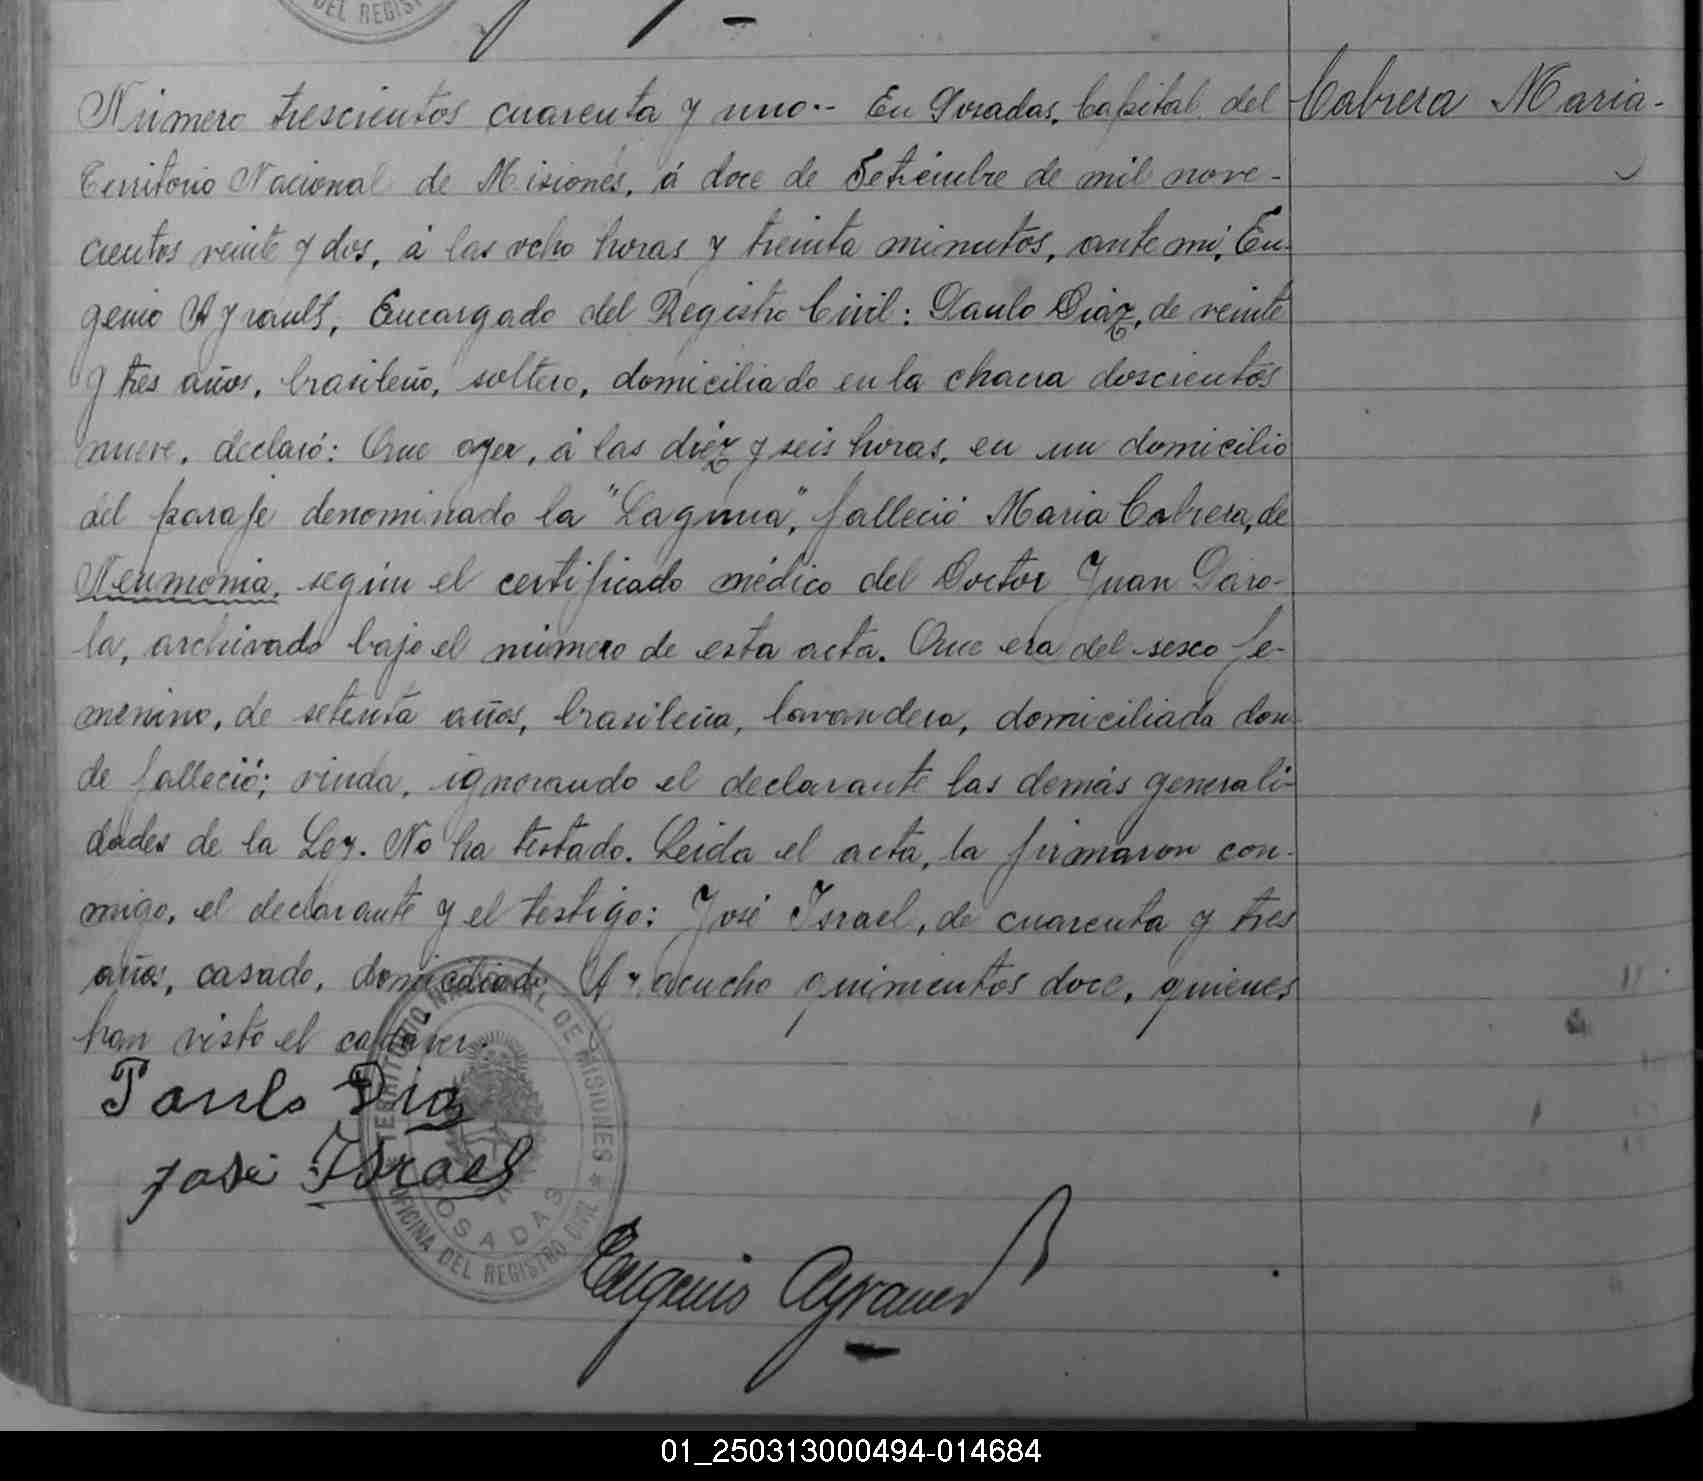 DEL REGIST
Número trescientos cuarenta y uno.- En Posadas, Capital del
Cabrera Maria.
Territorio Nacional de Misiones, á doce de Setiembre de mil nove-
cientos veinte y dos, á las ocho horas y treinta minutos, ante mi, Eu-
genio Ayrault, Encargado del Registro Civil: Paulo Diaz, de veinte
y tres años, brasileño, soltero, domiciliado en la chacra doscientos
nueve, declaró: Que ayer, á las diéz y seis horas, en un domicilio
del paraje denominado la "Laguna", falleció Maria Cabrera, de
Neumonia, según el certificado médico del Doctor Juan Paro-
la, archivado bajo el número de esta acta. Que era del sexo fe-
menino, de setenta años, brasileña, lavandera, domiciliada don-
de falleció; viuda, ignorando el declarante las demás generali-
dades de la Ley. No ha testado. Leida el acta, la firmaron con-
migo, el declarante y el testigo: José Israel, de cuarenta y tres
años, casado, domiciliado Ayacucho quinientos doce, quienes
han visto el cadaver.
Paulo Diaz
José Israel
TERRITORIO NACIONAL DE MISIONES
POSADAS
OFICINA DEL REGISTRO CIVIL
Eugenio Ayrault
01_250313000494-014684